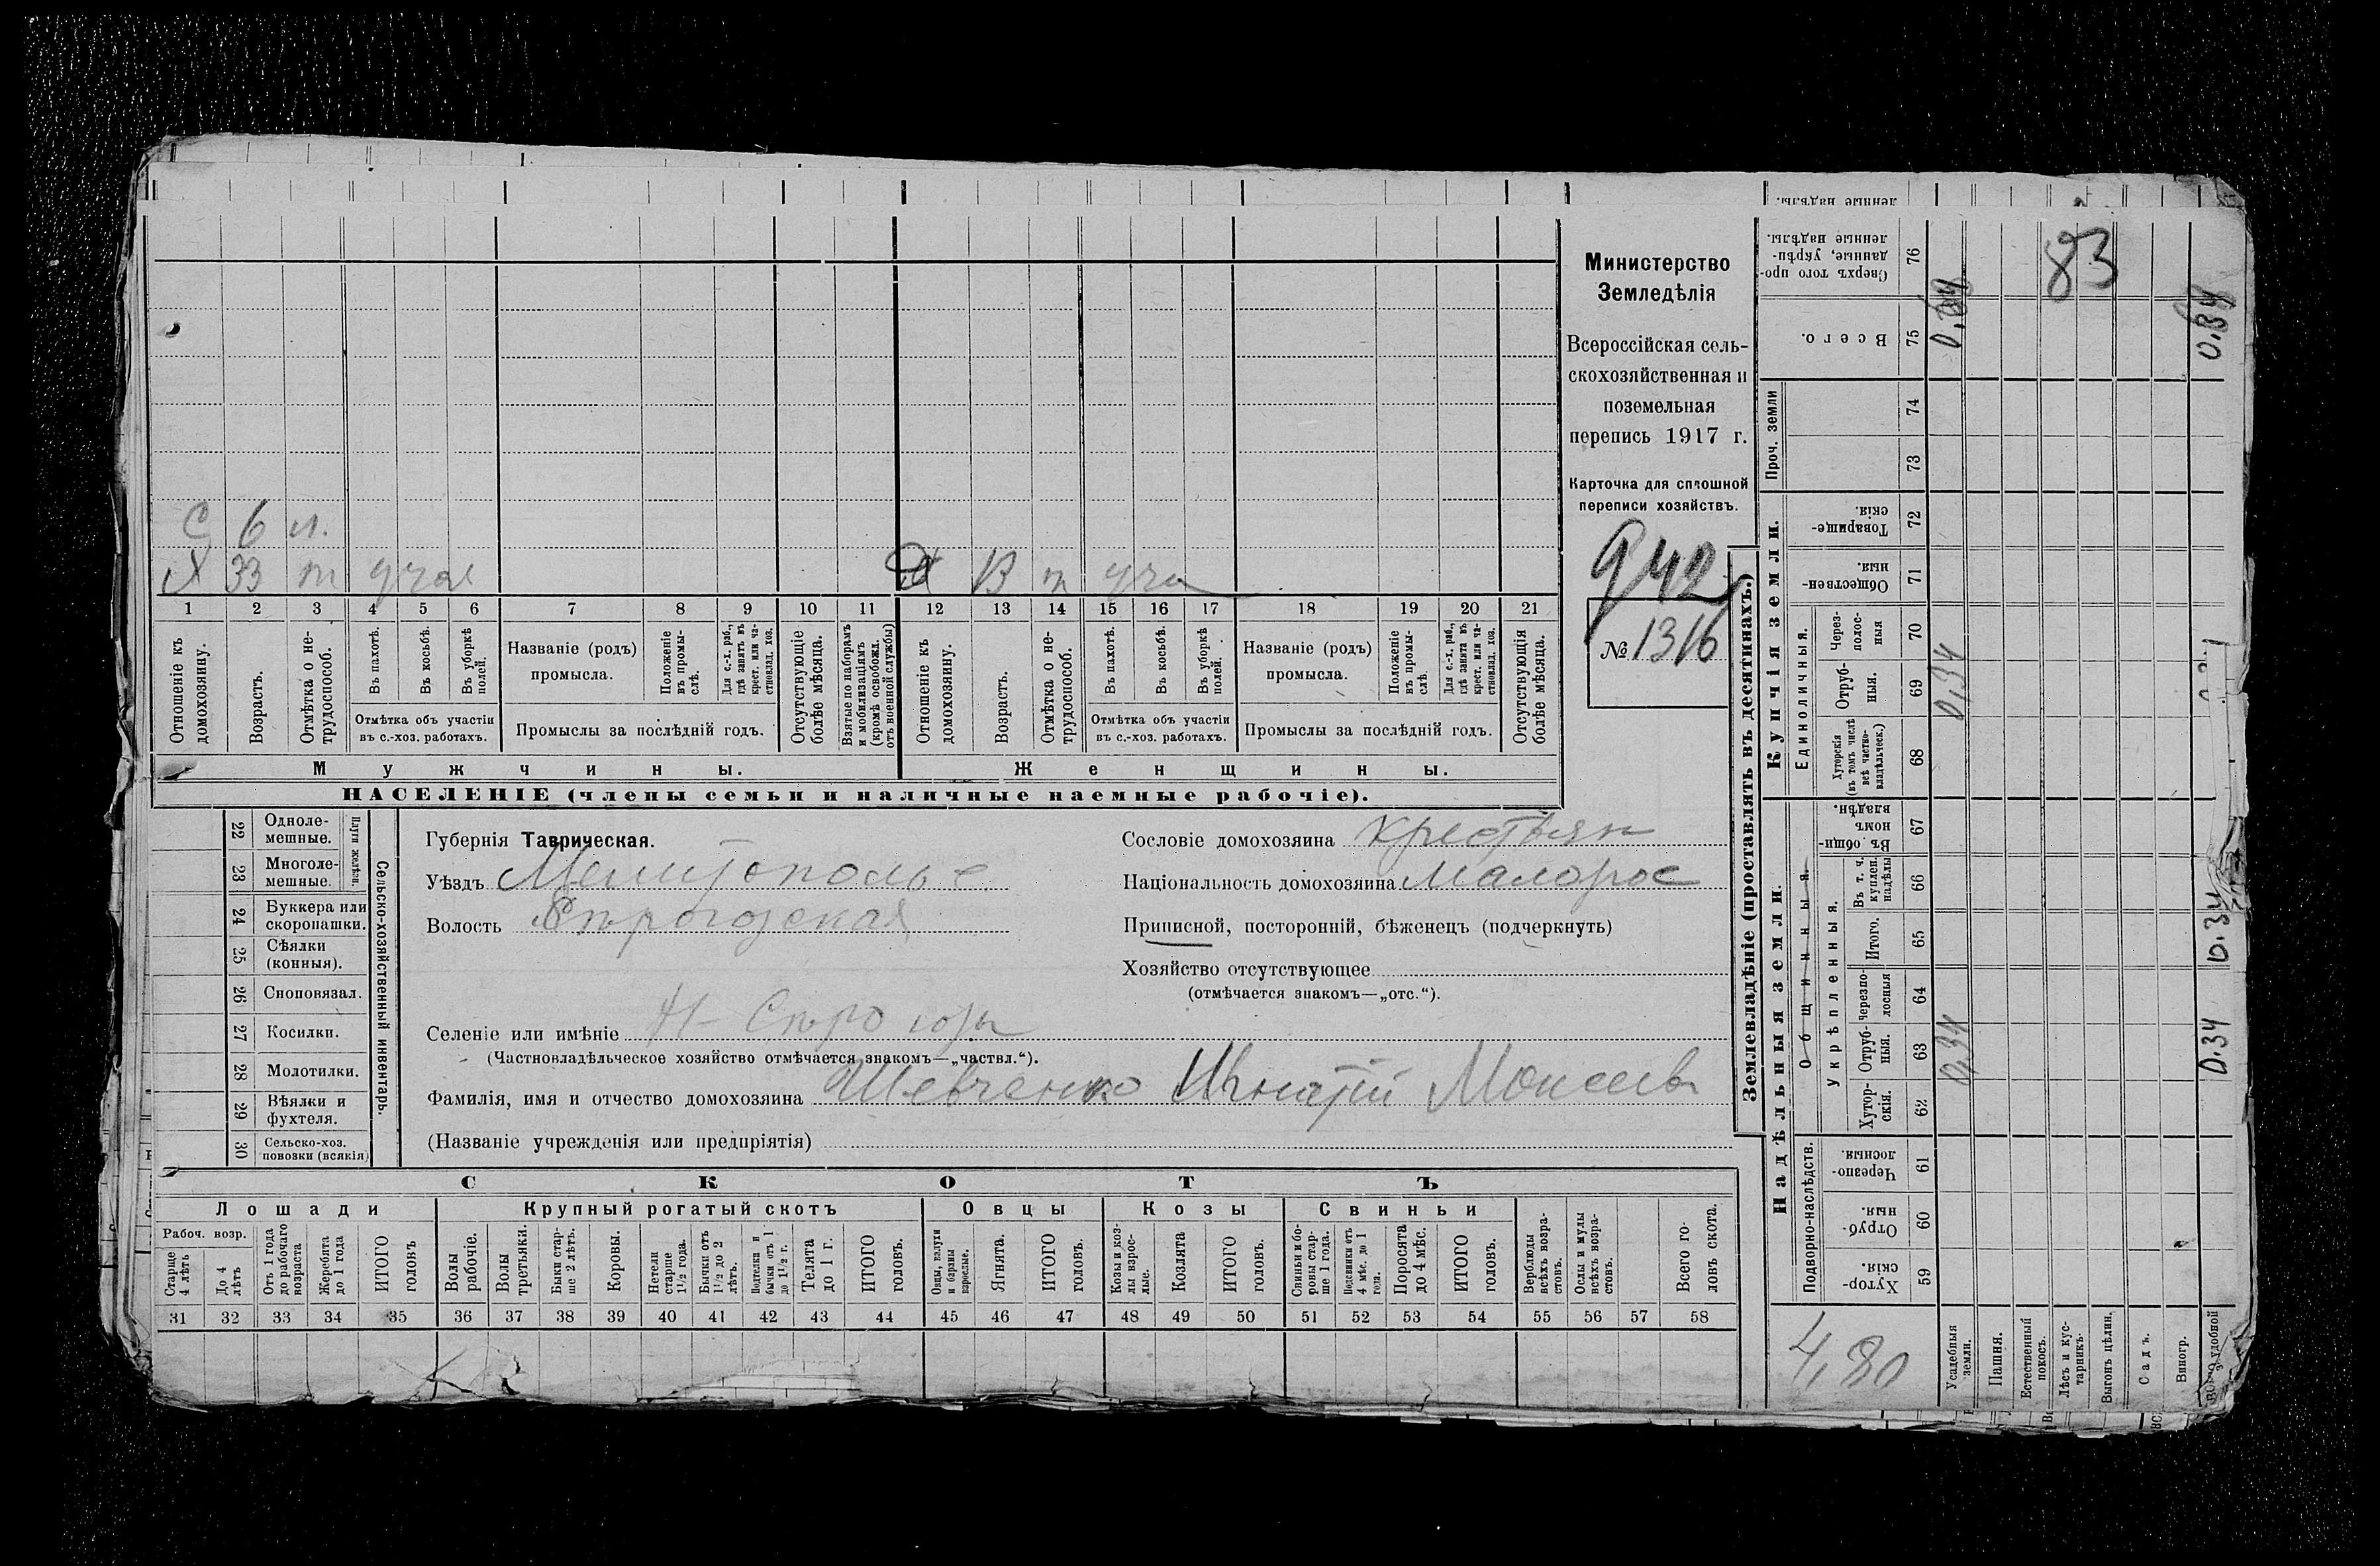 С 6 н.
Х 33 т учас
Ж 13 т уча
1 2 3 4 5 6 7 8 9 10 11 12 13 14 15 16 17 18 19 20 21
Отношеніе къ домохозяину.
Возрастъ.
Отмѣтка о не-трудоспособ.
Въ пахотѣ.
Въ косьбѣ.
Въ уборкѣ полей.
Отмѣтка объ участіи
въ с.-хоз. работахъ.
Названіе (родъ)
промысла.
Положеніе въ промы-слѣ.
Для с.-х. раб., гдѣ занятъ въ крест. или ча-стновлад. хоз.
Промыслы за послѣдній годъ.
Отсутствующіе болѣе мѣсяца.
Взятые по наборамъ и мобилизаціямъ (кромѣ освобожд. отъ военной службы)
Отношеніе къ домохозяину.
Возрастъ.
Отмѣтка о не-трудоспособ.
Въ пахотѣ.
Въ косьбѣ.
Въ уборкѣ полей.
Отмѣтка объ участіи
въ с.-хоз. работахъ.
Названіе (родъ)
промысла.
Положеніе въ промы-слѣ.
Для с.-х. раб., гдѣ занята въ крест. или ча-стновлад. хоз.
Промыслы за послѣдній годъ.
Отсутствующія болѣе мѣсяца.
Мужчины.
Женщины.
НАСЕЛЕНІЕ (члены семьи и наличные наемные рабочіе).
Министерство
Земледѣлія
Всероссійская сель-
скохозяйственная и
поземельная
перепись 1917 г.
Карточка для сплошной
переписи хозяйствъ.
942
№ 1316
22 Одноле-мешные.
23 Многоле-мешные.
Плуги желѣзн.
24 Буккера или скоропашки.
25 Сѣялки (конныя).
26 Сноповязал.
27 Косилки.
28 Молотилки.
29 Вѣялки и фухтеля.
30 Сельско-хоз. повозки (всякія)
Сельско-хозяйственный инвентарь.
Губернія Таврическая.
Уѣздъ Мелитополье
Волость
Селеніе или имѣніе Н-Сирогозы
(Частновладѣльческое хозяйство отмѣчается знакомъ—„частвл.“).
Фамилія, имя и отчество домохозяина Шевченко Игнатій Моисеев
(Названіе учрежденія или предпріятія)
Сословіе домохозяина крестьян
Національность домохозяина малорос
Приписной, посторонній, бѣженецъ (подчеркнуть)
Хозяйство отсутствующее
(отмѣчается знакомъ—„отс.“).
СКОТЪ
Лошади
Крупный рогатый скотъ
Овцы
Козы
Свиньи
Рабоч. возр.
Старше 4 лѣтъ
До 4 лѣтъ
Отъ 1 года до рабочаго возраста
Жеребята до 1 года
ИТОГО головъ
Волы рабочіе.
Волы третьяки.
Быки стар-ше 2 лѣтъ.
Коровы.
Нетели старше 1½ года.
Бычки отъ 1½ до 2 лѣтъ.
Подтелки и бычки отъ 1 до 1½ г.
Телята до 1 г.
ИТОГО головъ.
Овцы, валухи и бараны взрослые.
Ягнята.
ИТОГО головъ.
Козы и коз-лы взрос-лые.
Козлята
ИТОГО головъ.
Свиньи и бо-ровы стар-ше 1 года.
Подсвинки отъ 4 мѣс. до 1 года.
Поросята до 4 мѣс.
ИТОГО головъ.
Верблюды всѣхъ возра-стовъ.
Ослы и мулы всѣхъ возра-стовъ.
Всего го-ловъ скота.
31 32 33 34 35 36 37 38 39 40 41 42 43 44 45 46 47 48 49 50 51 52 53 54 55 56 57 58
Землевладѣніе (проставлять въ десятинахъ.)
Надѣльныя земли.
Купчія земли.
Проч. земли
Подворно-наслѣдств.
Общинныя.
Укрѣпленныя.
Единоличныя.
Сверхъ того про-данные, укрѣп-ленные надѣлы. 76
Всего. 75
74
73
Товарище-скія. 72
Обществен-ныя. 71
Через-полос-ныя 70
Отруб-ныя. 69
Хуторскія (въ томъ числѣ всѣ частно-владѣльческ.) 68
Въ общин-номъ владѣн. 67
Въ т. ч. куплен. надѣлы 66
Итого. 65
Черезпо-лосныя 64
Отруб-ныя. 63
Хутор-скія. 62
Черезпо-лосныя. 61
Отруб-ныя. 60
Хутор-скія. 59
Усадебныя земли.
Пашня.
Естественный покосъ.
Лѣсъ и кус-тарникъ.
Выгонъ цѣлин.
Садъ.
Виногр.
83
0,34
0,34
0.34
0.34
4,80